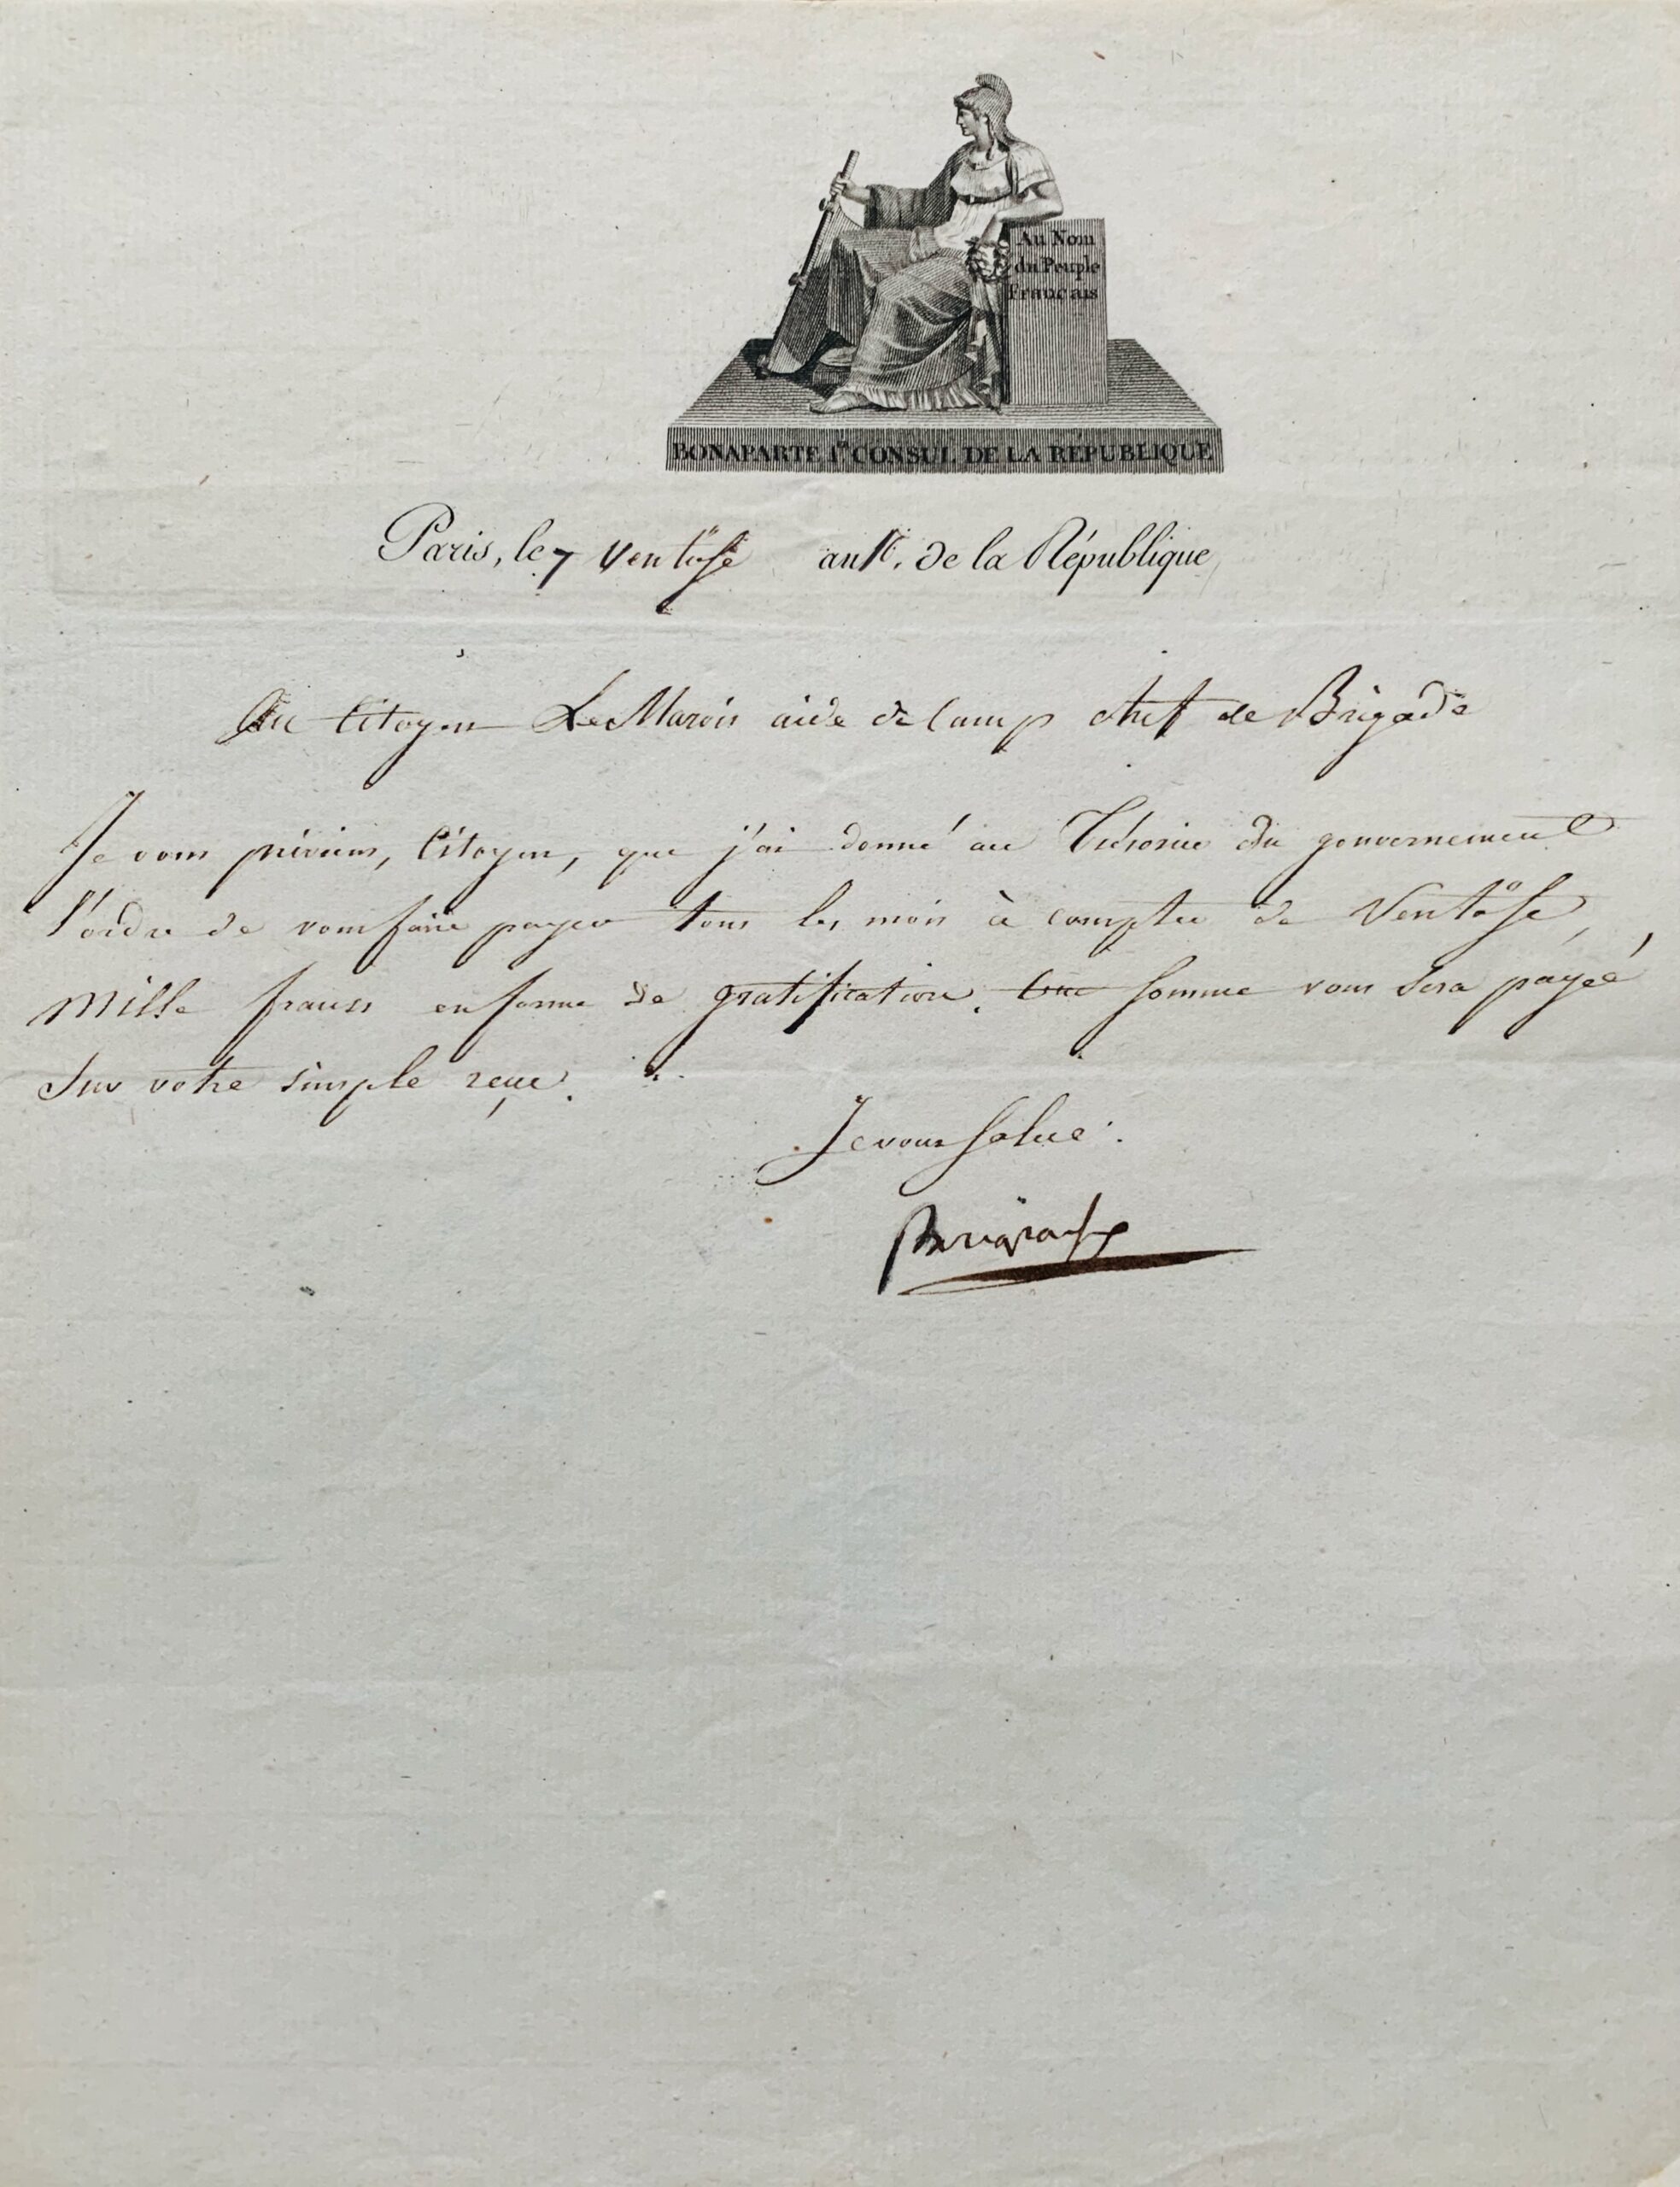 Au Nom
du Peuple
Français
BONAPARTE 1er CONSUL DE LA RÉPUBLIQUE
Paris, le 7 Ventôse an de la République
Au Citoyen Le Marois aide de Camp chef de Brigade
Je vous préviens, Citoyen, que j'ai donné au Trésorier du gouvernement
l'ordre de vous faire payer tous les mois à compter de Ventôse,
Mille francs en forme de gratification. Cette somme vous sera payée
sur votre simple reçu.
Je vous salue.
Bonaparte